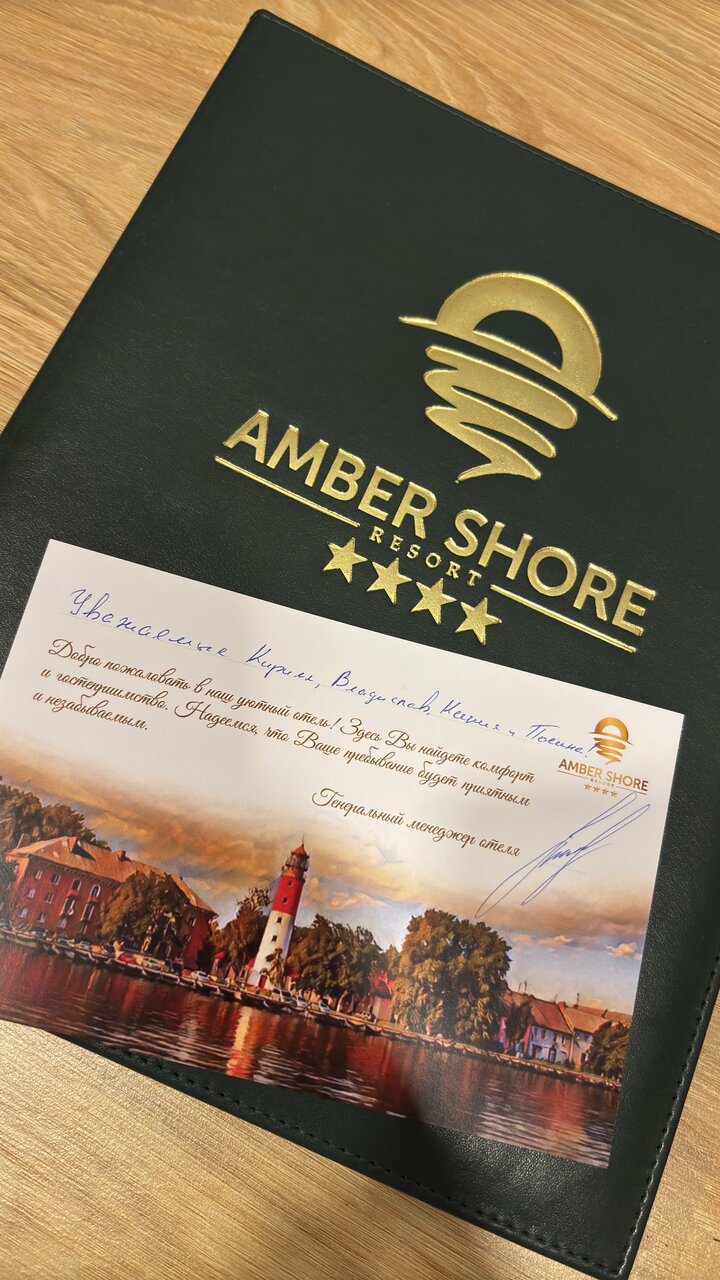 AMBER SHORE
RESORT
Уважаемые Кирилл, Владислав, Ксения и Полина!
Добро пожаловать в наш уютный отель! Здесь Вы найдете комфорт
и гостеприимство. Надеемся, что Ваше пребывание будет приятным
и незабываемым.
AMBER SHORE
RESORT
Генеральный менеджер отеля